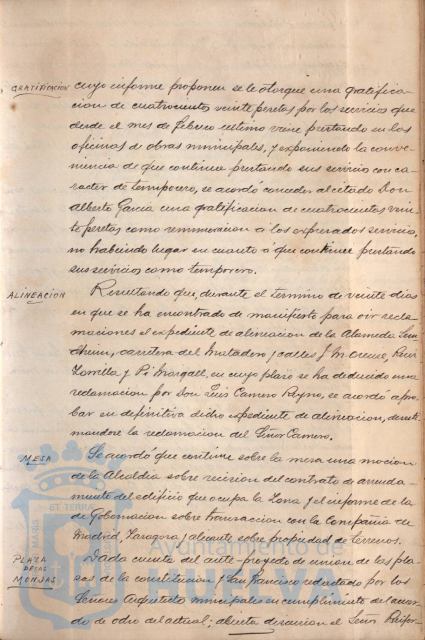 GRATIFICACION
cuyo informe proponen se le otorgue una gratifica-
cion de cuatrocientas veinte pesetas por los servicios que
desde el mes de Febrero ultimo viene prestando en las
oficinas de obras municipales, y exponiendo la conve-
niencia de que continue prestando sus servicios con ca-
racter de temporero, se acordó conceder al citado Don
Alberto Garcia una gratificacion de cuatrocientas vein-
te pesetas como remuneracion a los expresados servicios,
no habiendo lugar en cuanto á que continue prestando
sus servicios como temporero.
ALINEACION
Resultando que, durante el termino de veinte dias
en que se ha encontrado de manifiesto para oir recla-
maciones el expediente de alineacion de la Alameda Sun-
dheim, carretera del Matadero y calles J. M. Orense, Ruiz
Zorrilla y Pi Margall, en cuyo plazo se ha deducido una
reclamacion por Don Luis Camero, se acordó apro-
bar en definitiva dicho expediente de alineacion, deses-
timandose la reclamacion del Señor Camero.
MESA
Se acordó que continue sobre la mesa una mocion
de la Alcaldia sobre recision del contrato de arrenda-
miento del edificio que ocupa la Zona y el informe de la
de Gobernacion sobre transaccion con la Compañia de
Madrid, Zaragoza y Alicante sobre propiedad de terrenos.
PLAZA
DE LAS
MONJAS
Dada cuenta del ante-proyecto de union de las pla-
zas de la Constitucion y San Francisco redactado por los
Señores Arquitectos municipales en cumplimiento del acuer-
do de ocho del actual; abierta discusion el Señor
Ayuntamiento de
HUELVA